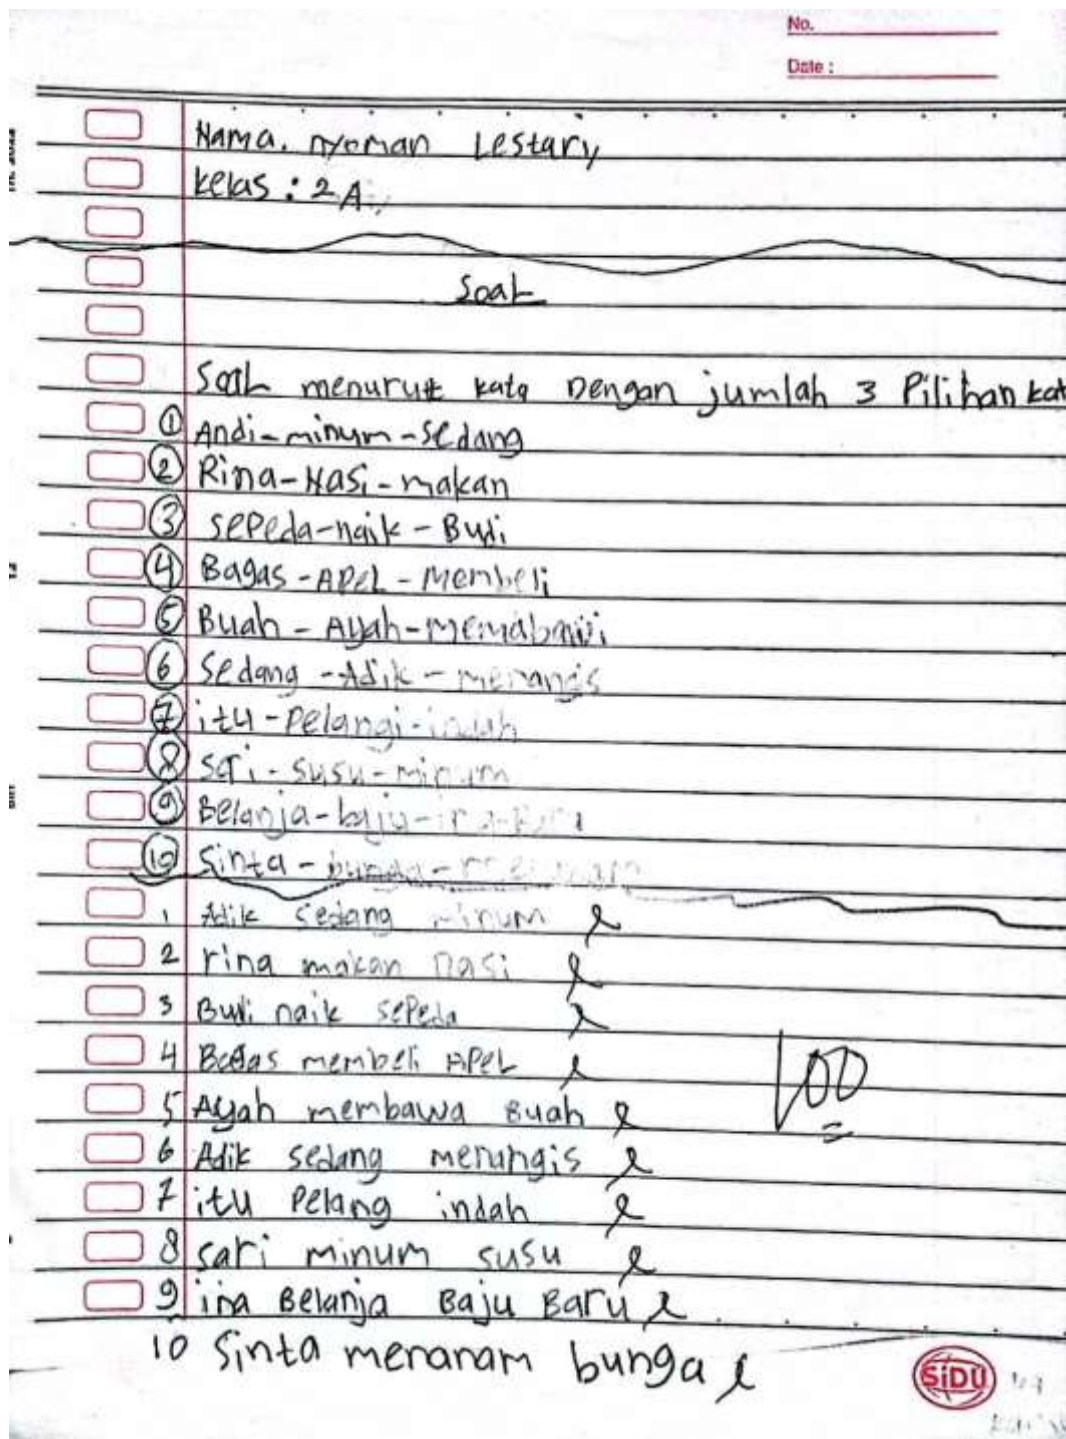 No.
Date :
Nama. nyoman Lestary
kelas : 2 A
Soal
Soal menurut kata Dengan jumlah 3 Pilihan kat
1 Andi-minum-sedang
2 Rina-Nasi-makan
3 sepeda-naik-Budi
4 Bagas-APeL-Membeli
5 Buah-Ayah-
6 Sedang-Adik-menangis
7 itu-Pelangi-indah
8 sari-susu-minum
9 Belanja-baju-ira-
10 Sinta-bunga-
1 Adik sedang minum
2 rina makan nasi
3 Budi naik sepeda
4 Bagas membeli APeL
5 Ayah membawa Buah
6 Adik sedang menangis
7 itu Pelang indah
8 sari minum susu
9 ira Belanja Baju Baru
10 Sinta menanam bunga
100
SiDU